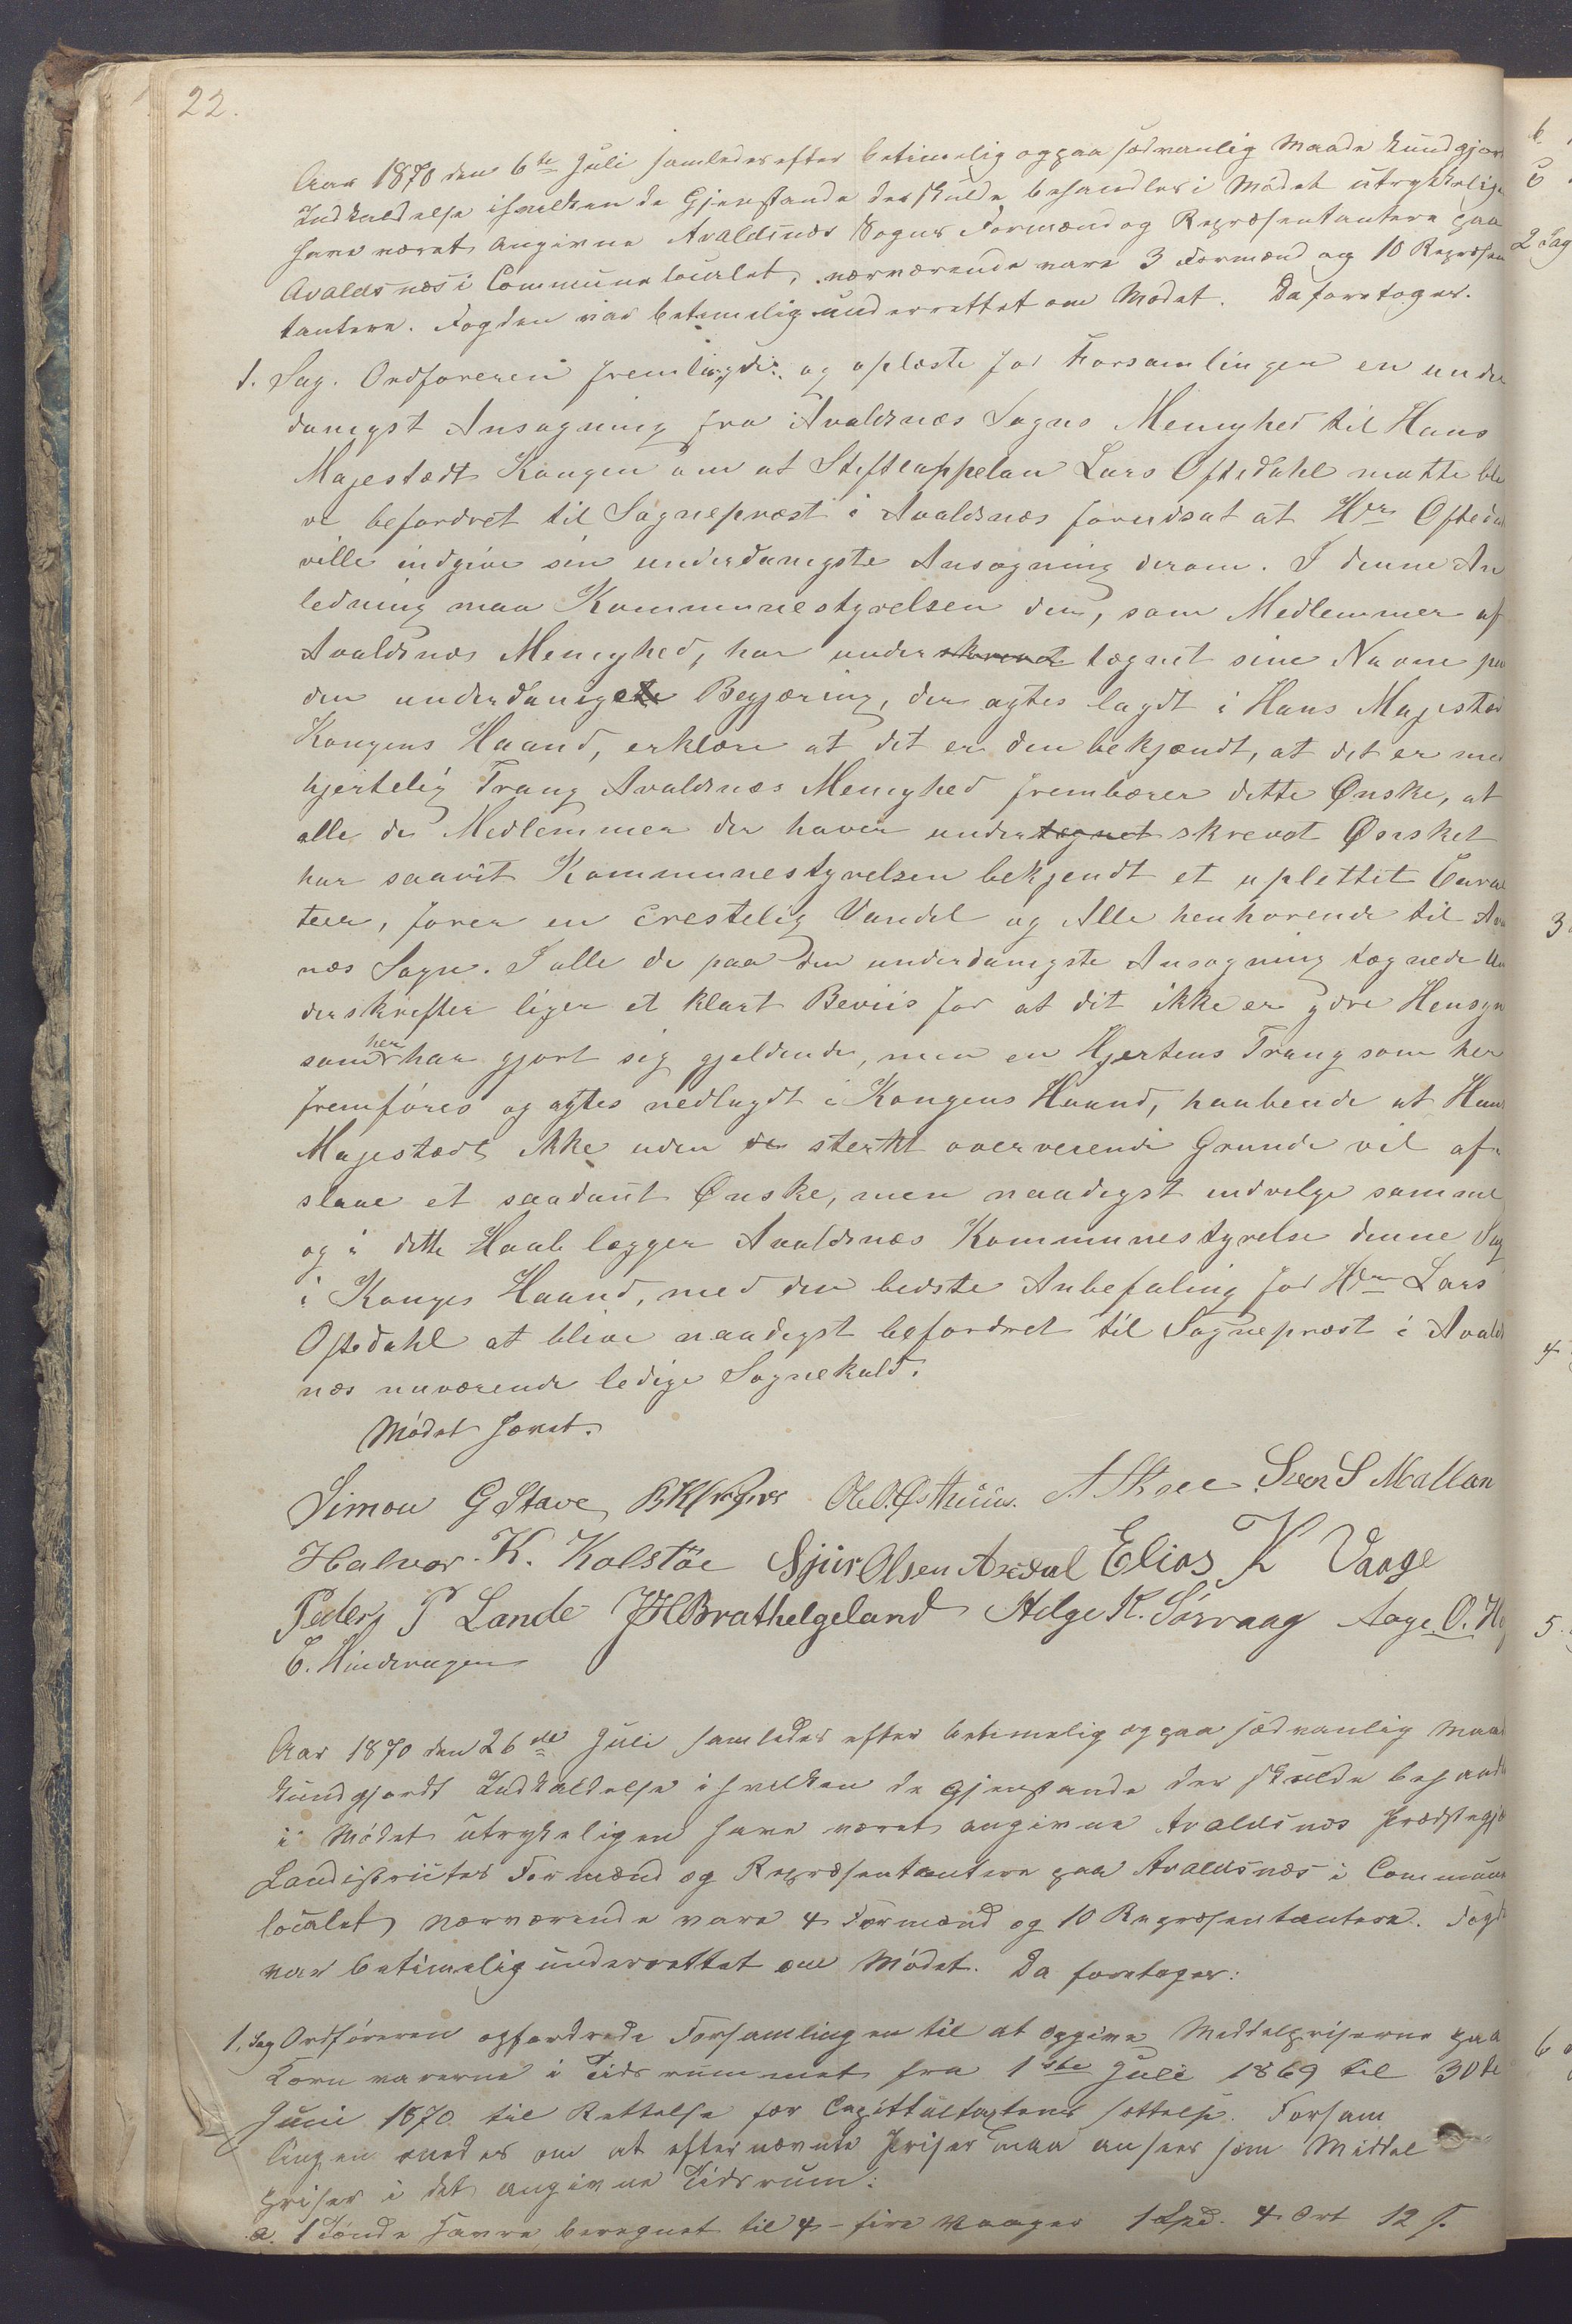 22.
Aar 1870 den 6te Juli samledes efter betimelig og paa sædvanlig Maade kundgjor
Indkaldelse i hvilken de Gjenstande der skulde behandles i Mødet utrykkelige
have været angivne Avaldsnæs Sogns Formænd og Repræsentantere paa
Avaldsnæs i Communelocalet, nærværende vare 3 Formænd og 10 Repræsen
tantere. Fogden var betimelig underrettet om Mødet. Da foretoges.
1. Sag. Ordføreren fremlagde og oplæste for Forsamlingen en under
danigst Ansøgning fra Avaldsnæs Sogns Menighed til Hans
Majestædt Kongen om at Stiftcappelan Lars Oftedahl maatte bli
ve befordret til Sognepræst i Avaldsnæs forudsat at Hr Ofteda
ville indgive sin underdanigste Ansøgning derom. I denne An
ledning maa Kommunestyrelsen der, som Medlemmer af
Avaldsnæs Menighed, har under skrevet tegnet sine Navne paa
den underdanigste Begjæring, der agtes lagdt i Hans Majestæd
Kongens Haand, erklære at det er den bekjændt, at det er med
hjertelig Trang Avaldsnæs Menighed frembærer dette Ønske, at
alle de Medlemmer der haver undertegnet skrevet Ønsket
har saavit Kommunestyrelsen bekjendt et uplettet Carac
teer, fører en Crestelig Vandel og Alle henhørende til Ava
næs Sogn. I alle de paa den underdanigste Ansøgning tegnede Un
derskrifter liger et klart Beviis for at det ikke er ydre Hensyn
som her har gjort sig gjeldende, men en Hjertens Trang som her
fremføres og agtes nedlagdt i Kongens Haand, haabende at Hans
Majestædt ikke uden de sterkt overveiende Grunde vil af
slaae et saadant Ønske, men naadigst indvilge samme
og i dette Haab lægger Avaldsnæs Kommunestyrelse denne Sag
i Konges Haand, med den bedste Anbefaling for Hr Lars
Oftedahl at blive naadigst befordret til Sognepræst i Avalds
næs nuværende ledige Sognekald.
Mødet hævet.
Simon G Stave Ole O. Østhuus. A Skree Sven S Mælan
Halvor K. Kolstøe Sjur Olsen Axdal Elias K Vaage
Peder P Lande JH Brathelgeland Helge K. Sørvaag Aage. O. H
E. Hindervagen
Aar 1870 den 26de Juli samledes efter betimelig og paa sædvanlig Maad
kundgjordt Indkaldelse i hvilken de Gjenstande der skulde behandl
i Mødet utrykeligen have været angivne Avaldsnæs Præstegje
Landistricter Formænd og Repræsentantere paa Avaldsnæs i Commune
localet, nærværende vare 4 Formænd og 10 Repræsentantere. Fogd
var betimelig underrettet om Mødet. Da foretoges:
1. Sag Ordføreren opfordrede Forsamlingen til at opgive Middelpriserne paa
Kornvarerne i Tidsrummet fra 1ste Juli 1869 til 30te
Juni 1870 til Rettelse for Capitulstaxtens settelse. Forsam
lingen enedes om at efternævnte Priser maa ansees som Middel
priser i det angivne Tidsrum:
a. 1 Tønde Havre beregnet til 4 - fire Vaager 1 Spd. 4 Ort 12 s.
6
2 Sag
3
4
5.
6